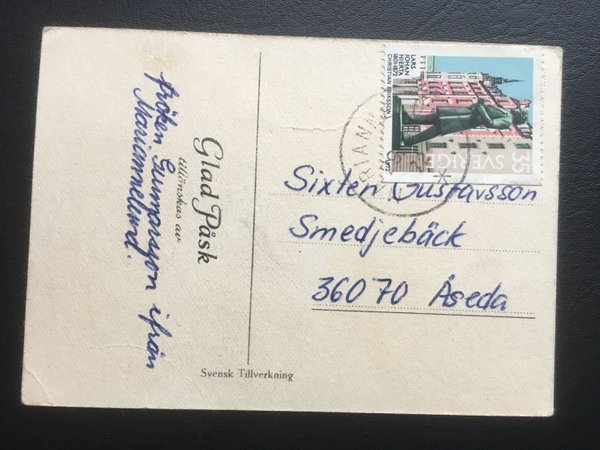 Glad Påsk
tillönskas av
fröken Gunnarsson ifrån
Mariannelund.
Svensk Tillverkning
LARS
JOHAN
HIERTA
1801-1872
CHRISTIAN ERIKSSON
SVERIGE
35
RIANN
Sixten Gustavsson
Smedjebäck
36070 Åseda